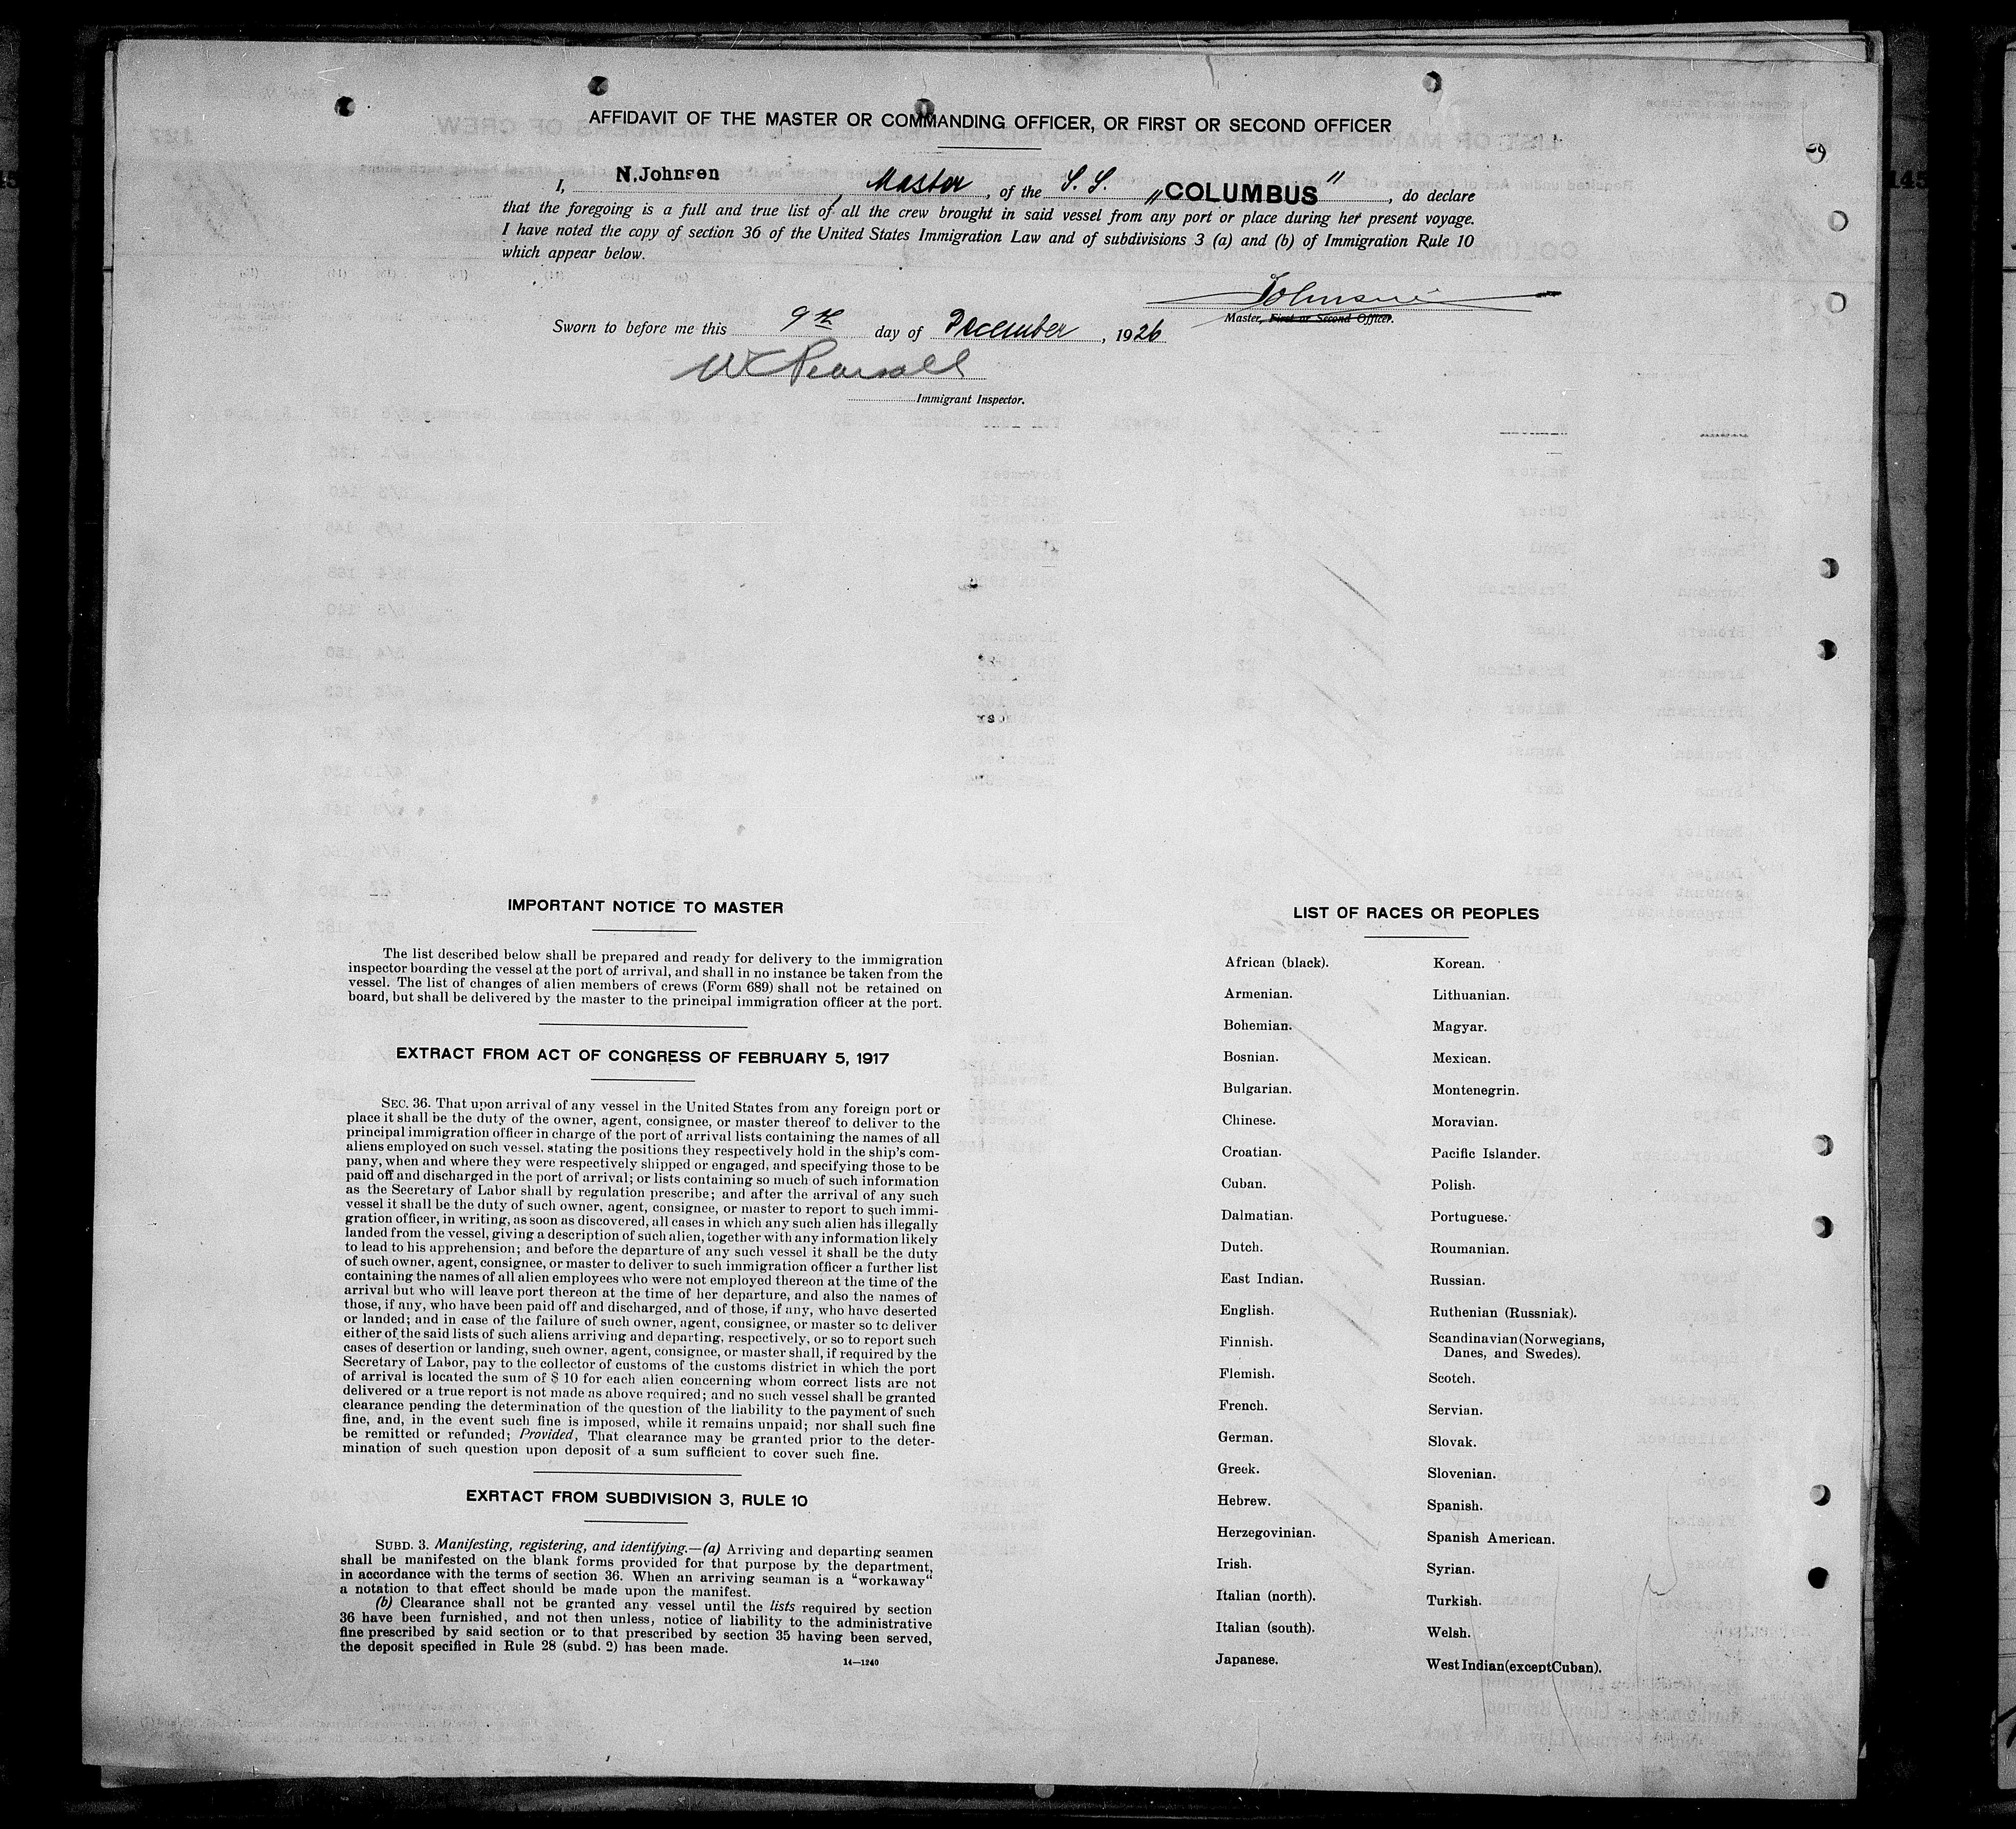 AFFIDAVIT OF THE MASTER OR COMMANDING OFFICER, OR FIRST OR SECOND OFFICER
I, N. Johnsen, Master, of the S. S. „COLUMBUS”, do declare
that the foregoing is a full and true list of all the crew brought in said vessel from any port or place during her present voyage.
I have noted the copy of section 36 of the United States Immigration Law and of subdivisions 3 (a) and (b) of Immigration Rule 10
which appear below.
Johnsen
Master, First or Second Officer.
Sworn to before me this 9th day of December, 1926
Immigrant Inspector.
IMPORTANT NOTICE TO MASTER
The list described below shall be prepared and ready for delivery to the immigration
inspector boarding the vessel at the port of arrival, and shall in no instance be taken from the
vessel. The list of changes of alien members of crews (Form 689) shall not be retained on
board, but shall be delivered by the master to the principal immigration officer at the port.
EXTRACT FROM ACT OF CONGRESS OF FEBRUARY 5, 1917
SEC. 36. That upon arrival of any vessel in the United States from any foreign port or
place it shall be the duty of the owner, agent, consignee, or master thereof to deliver to the
principal immigration officer in charge of the port of arrival lists containing the names of all
aliens employed on such vessel, stating the positions they respectively hold in the ship's com-
pany, when and where they were respectively shipped or engaged, and specifying those to be
paid off and discharged in the port of arrival; or lists containing so much of such information
as the Secretary of Labor shall by regulation prescribe; and after the arrival of any such
vessel it shall be the duty of such owner, agent, consignee, or master to report to such immi-
gration officer, in writing, as soon as discovered, all cases in which any such alien has illegally
landed from the vessel, giving a description of such alien, together with any information likely
to lead to his apprehension; and before the departure of any such vessel it shall be the duty
of such owner, agent, consignee, or master to deliver to such immigration officer a further list
containing the names of all alien employees who were not employed thereon at the time of the
arrival but who will leave port thereon at the time of her departure, and also the names of
those, if any, who have been paid off and discharged, and of those, if any, who have deserted
or landed; and in case of the failure of such owner, agent, consignee, or master so to deliver
either of the said lists of such aliens arriving and departing, respectively, or so to report such
cases of desertion or landing, such owner, agent, consignee, or master shall, if required by the
Secretary of Labor, pay to the collector of customs of the customs district in which the port
of arrival is located the sum of $ 10 for each alien concerning whom correct lists are not
delivered or a true report is not made as above required; and no such vessel shall be granted
clearance pending the determination of the question of the liability to the payment of such
fine, and, in the event such fine is imposed, while it remains unpaid; nor shall such fine
be remitted or refunded; Provided, That clearance may be granted prior to the deter-
mination of such question upon deposit of a sum sufficient to cover such fine.
EXRTACT FROM SUBDIVISION 3, RULE 10
SUBD. 3. Manifesting, registering, and identifying.—(a) Arriving and departing seamen
shall be manifested on the blank forms provided for that purpose by the department,
in accordance with the terms of section 36. When an arriving seaman is a “workaway“
a notation to that effect should be made upon the manifest.
(b) Clearance shall not be granted any vessel until the lists required by section
36 have been furnished, and not then unless, notice of liability to the administrative
fine prescribed by said section or to that prescribed by section 35 having been served,
the deposit specified in Rule 28 (subd. 2) has been made.
14—1240
LIST OF RACES OR PEOPLES
African (black).
Armenian.
Bohemian.
Bosnian.
Bulgarian.
Chinese.
Croatian.
Cuban.
Dalmatian.
Dutch.
East Indian.
English.
Finnish.
Flemish.
French.
German.
Greek.
Hebrew.
Herzegovinian.
Irish.
Italian (north).
Italian (south).
Japanese.
Korean.
Lithuanian.
Magyar.
Mexican.
Montenegrin.
Moravian.
Pacific Islander.
Polish.
Portuguese.
Roumanian.
Russian.
Ruthenian (Russniak).
Scandinavian (Norwegians,
Danes, and Swedes).
Scotch.
Servian.
Slovak.
Slovenian.
Spanish.
Spanish American.
Syrian.
Turkish.
Welsh.
West Indian (except Cuban).